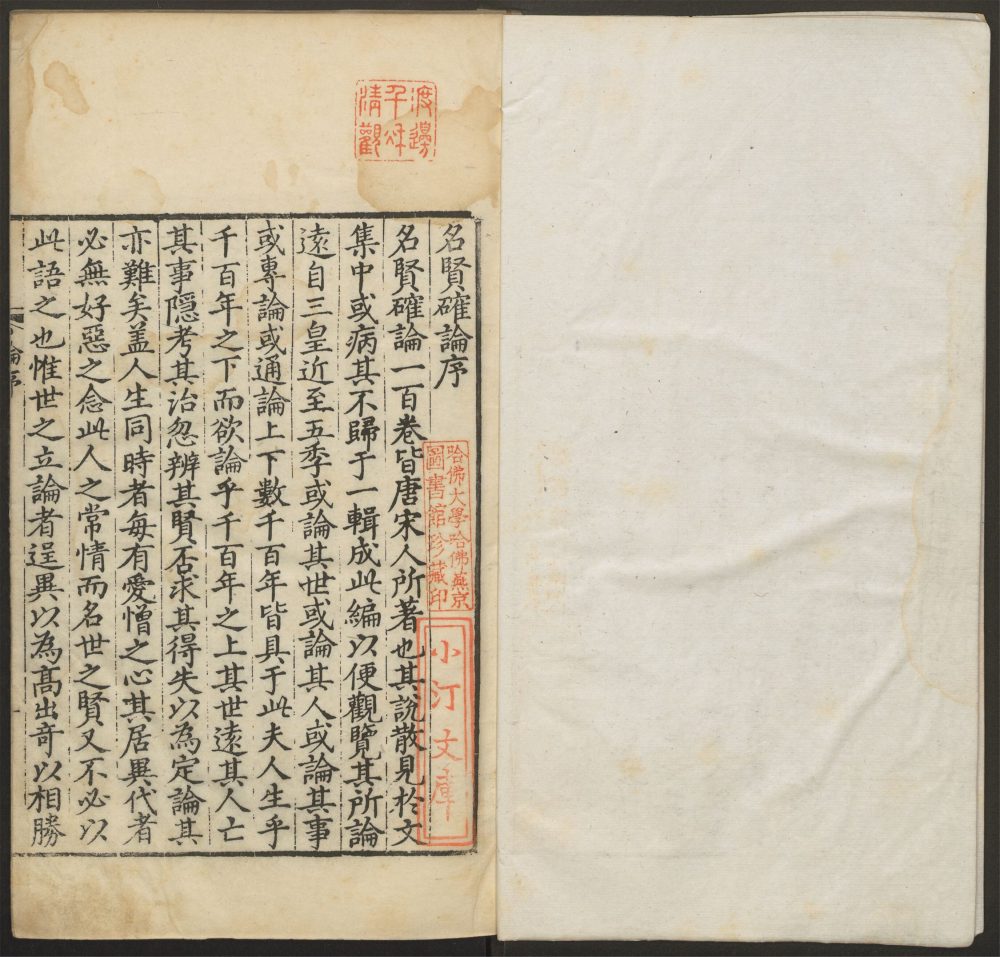 渡邊
千秋
清觀
名賢確論序
名賢確論一百卷皆唐宋人所著也其說散見於文
集中或病其不歸于一輯成此編以便觀覽其所論
遠自三皇近至五季或論其世或論其人或論其事
或專論或通論上下數千百年皆具于此夫人生乎
千百年之下而欲論乎千百年之上其世遠其人亡
其事隱考其治忽辨其賢否求其得失以為定論其
亦難矣盖人生同時者每有愛憎之心其居異代者
必無好惡之念此人之常情而名世之賢又不必以
此語之也惟世之立論者逞異以為高出竒以相勝
哈佛大學哈佛燕京
圖書館珍藏印
小汀文庫
論序